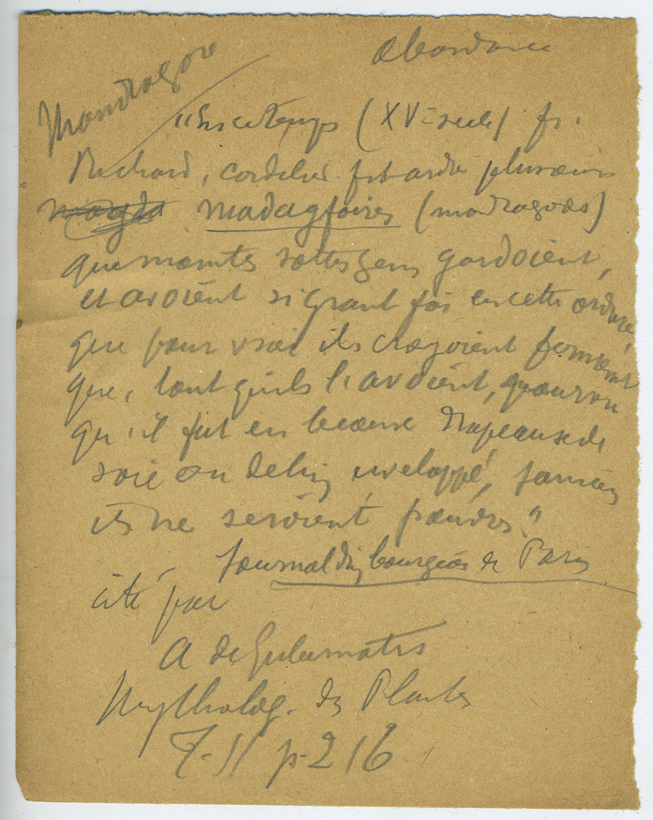 Mandragore
Abondance
"En ce temps (XVe siècle) fr.
Richard, cordelier fit ardre plusieurs
madagfoires (mandragores)
que maintes sottes gens gardoient,
et avoient si grant foi en cette ordure,
que pour vrai ils croyoient fermement
que, tant qu'ils l'avoient, pourvu
qu'il fut en beaux drapeaux de
soie ou de lin enveloppé, jamais
ils ne seroient pauvres."
Journal d'un bourgeois de Paris
cité par
A de Gubernatis
Mytholog. des Plantes
T. II p. 216